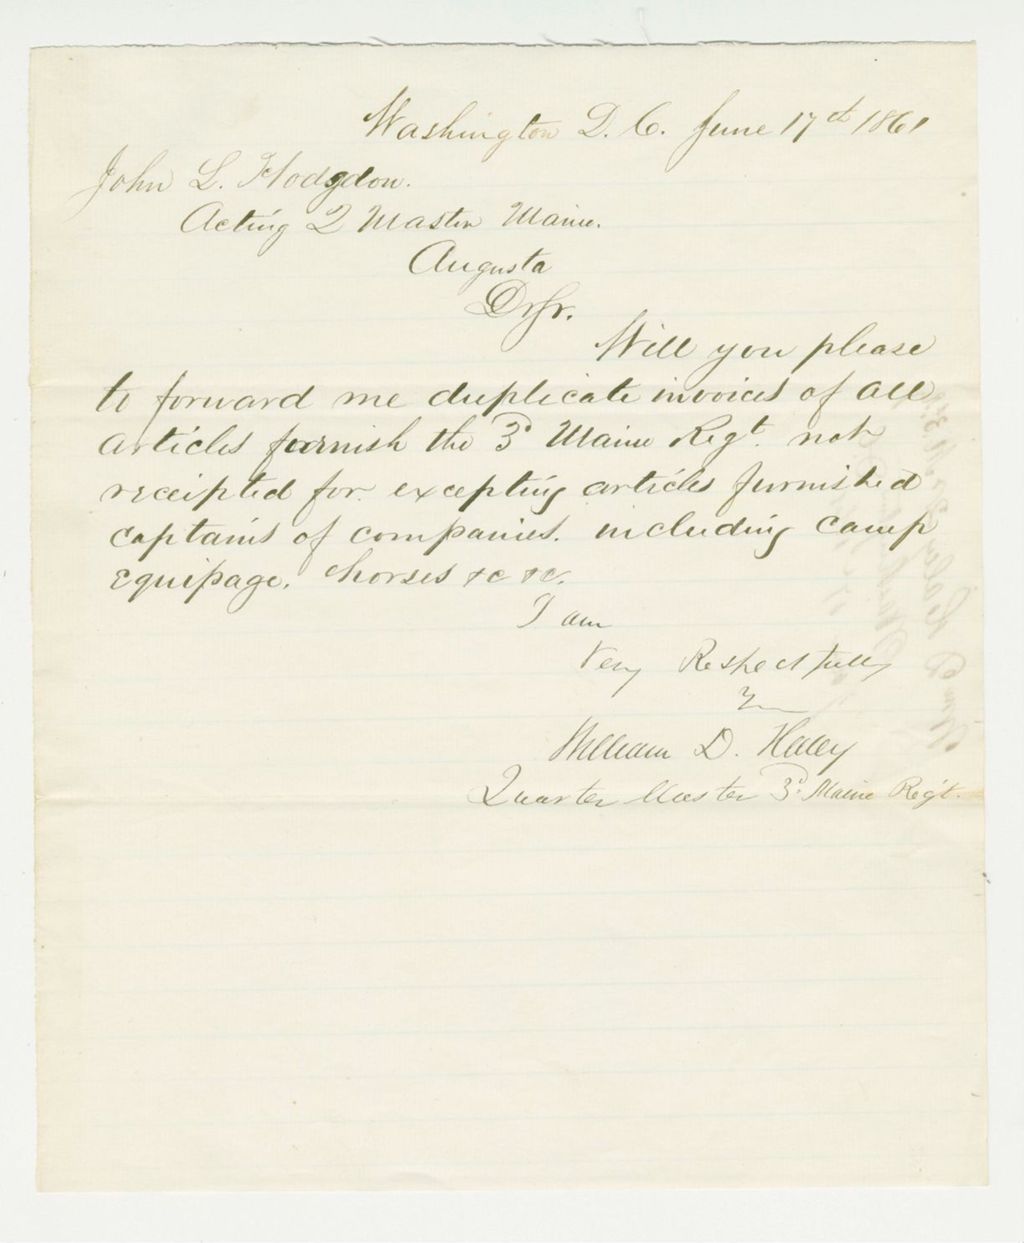 Washington D. C. June 17th 1861
John L. Hodgdon.
Acting Q Master Maine.
Augusta
Dr Sr.
Will you please
to forward me duplicate invoices of all
articles furnish the 3d Maine Regt. not
receipted for. excepting articles furnished
captains of companies. including camp
equipage. horses &c &c.
I am
Very Respectfully
William D. Haley
Quarter Master 3d Maine Regt.